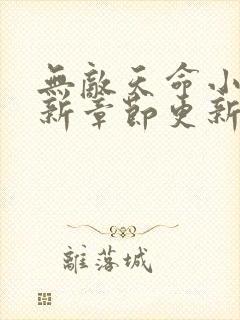 無敵天命小
新章節更新
離落城